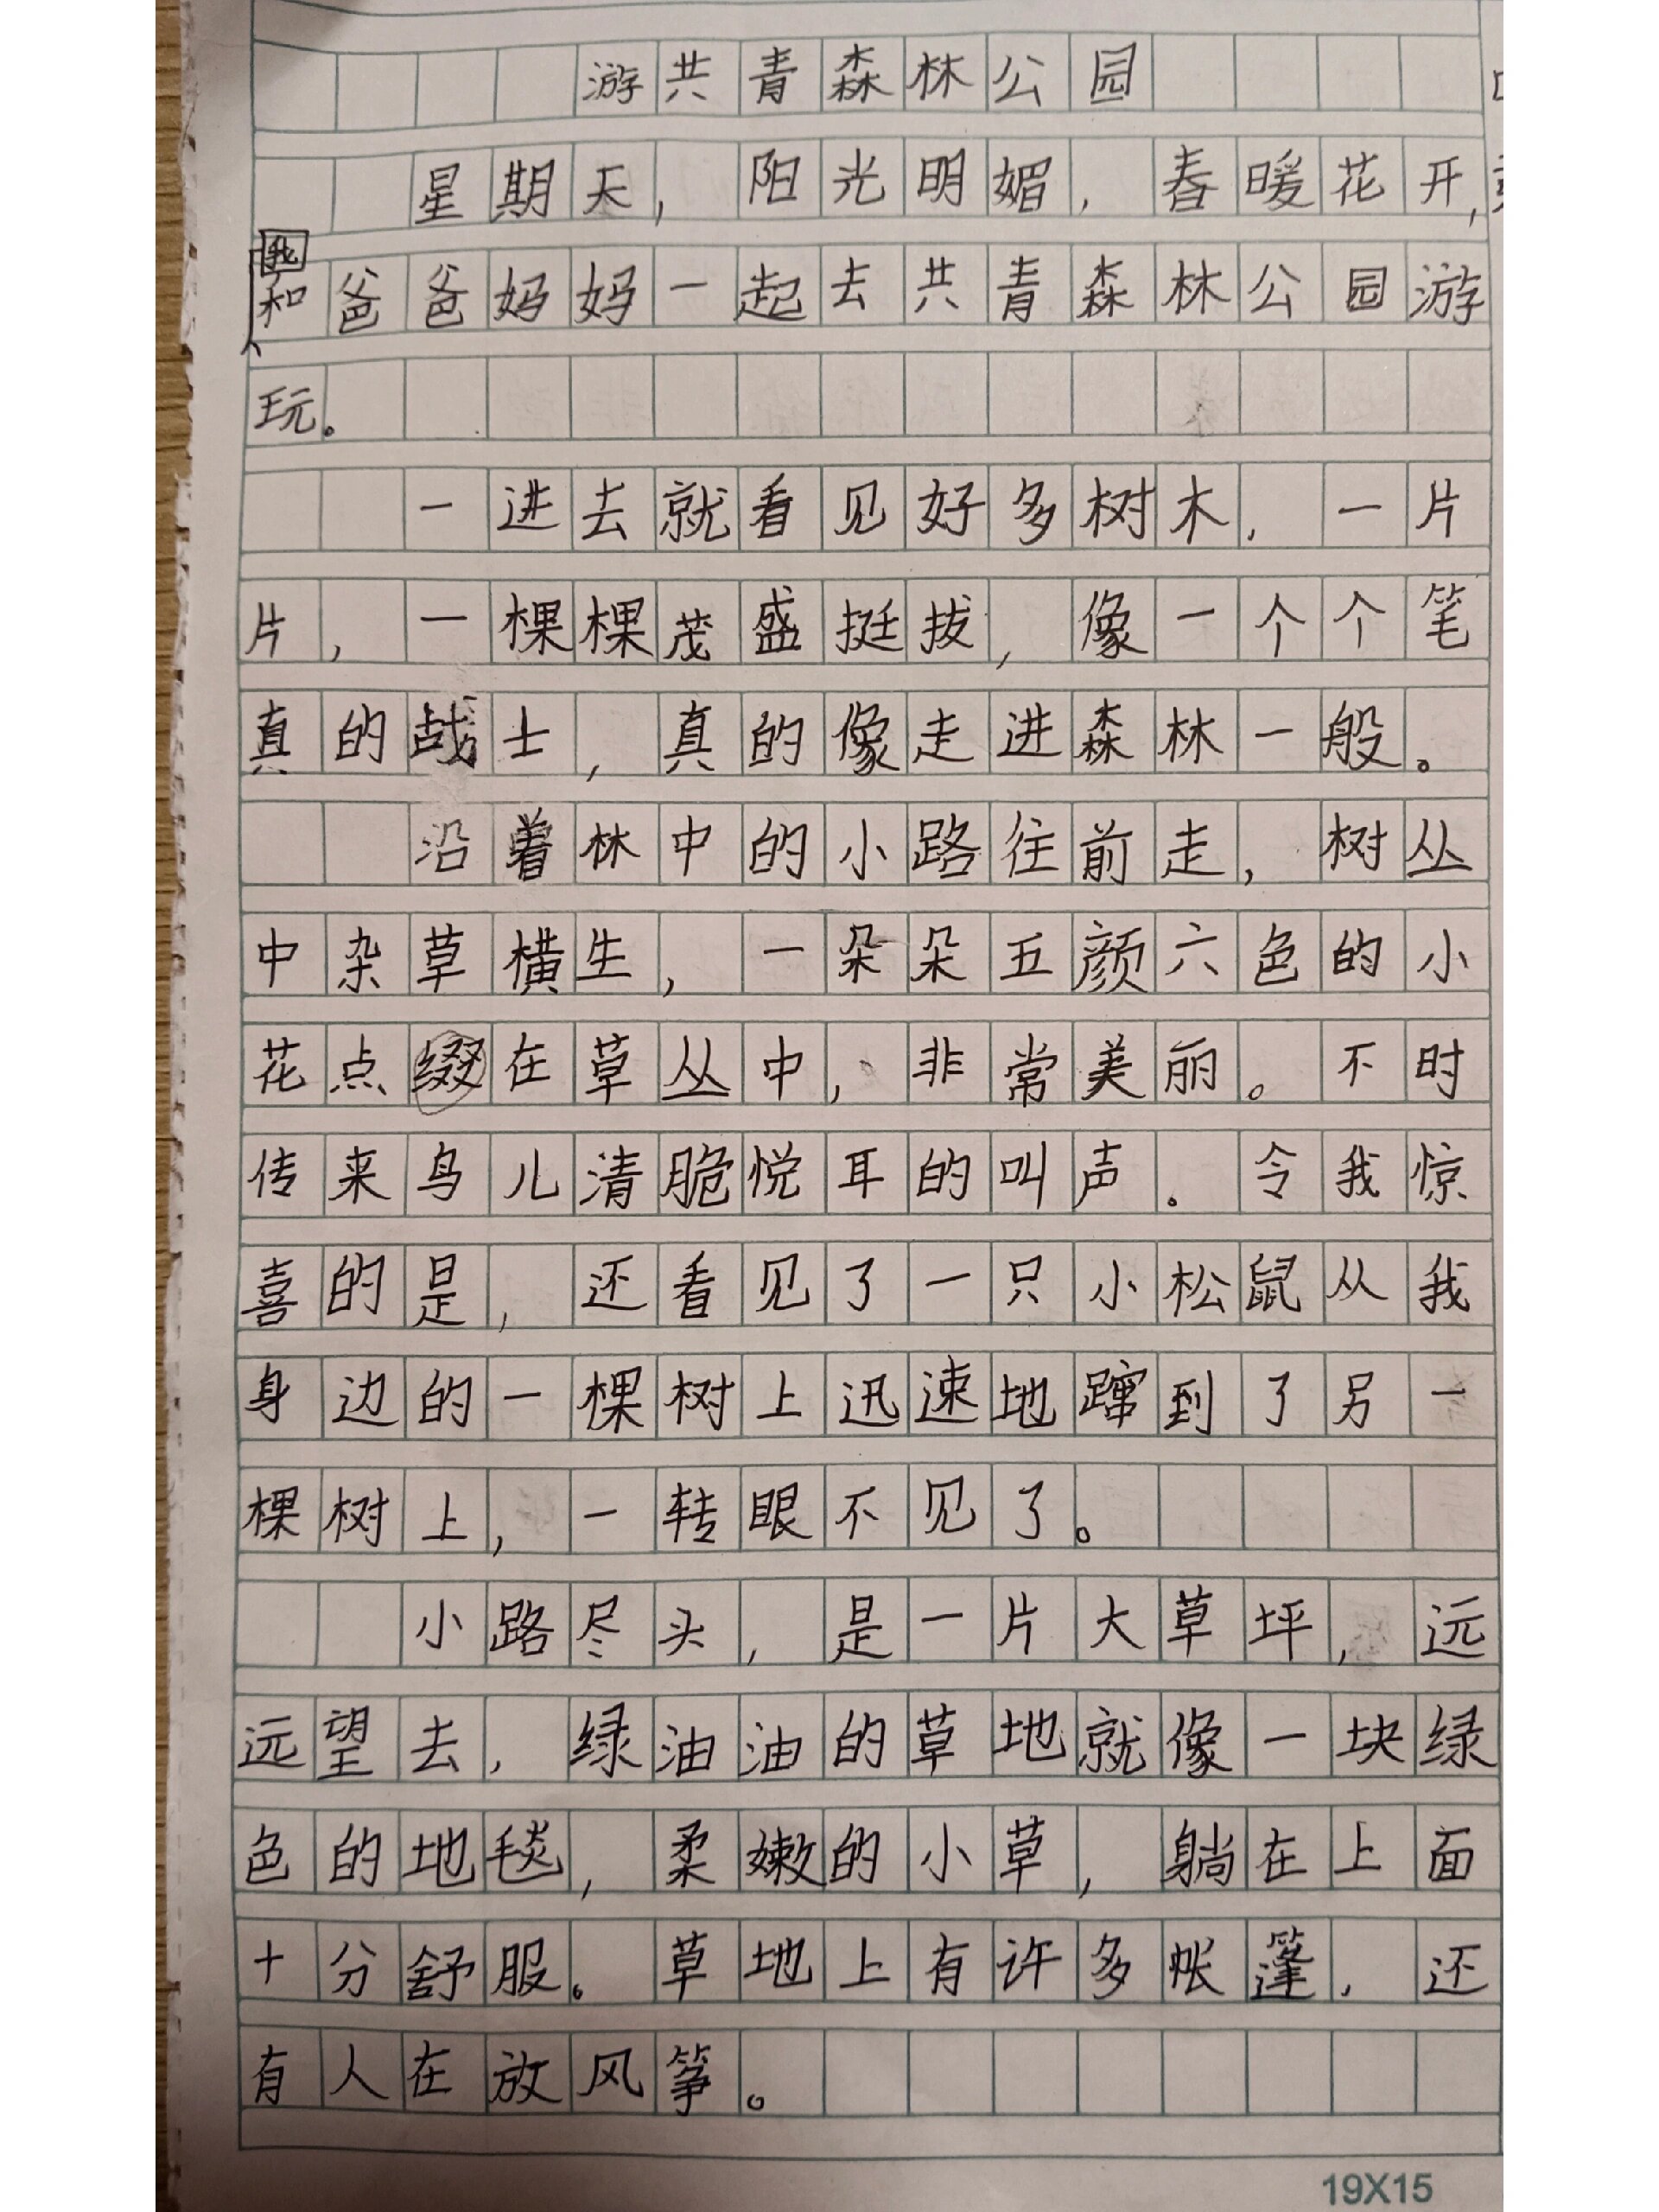 游共青森林公园
星期天，阳光明媚，春暖花开，
我
和爸爸妈妈一起去共青森林公园游
玩。
一进去就看见好多树木，一片
片，一棵棵茂盛挺拔，像一个个笔
真的战士，真的像走进森林一般。
沿着林中的小路往前走，树丛
中杂草横生，一朵朵五颜六色的小
花点缀在草丛中，非常美丽。不时
传来鸟儿清脆悦耳的叫声。令我惊
喜的是，还看见了一只小松鼠从我
身边的一棵树上迅速地蹿到了另一
棵树上，一转眼不见了。
小路尽头，是一片大草坪，远
远望去，绿油油的草地就像一块绿
色的地毯，柔嫩的小草，躺在上面
十分舒服。草地上有许多帐篷，还
有人在放风筝。
19X15